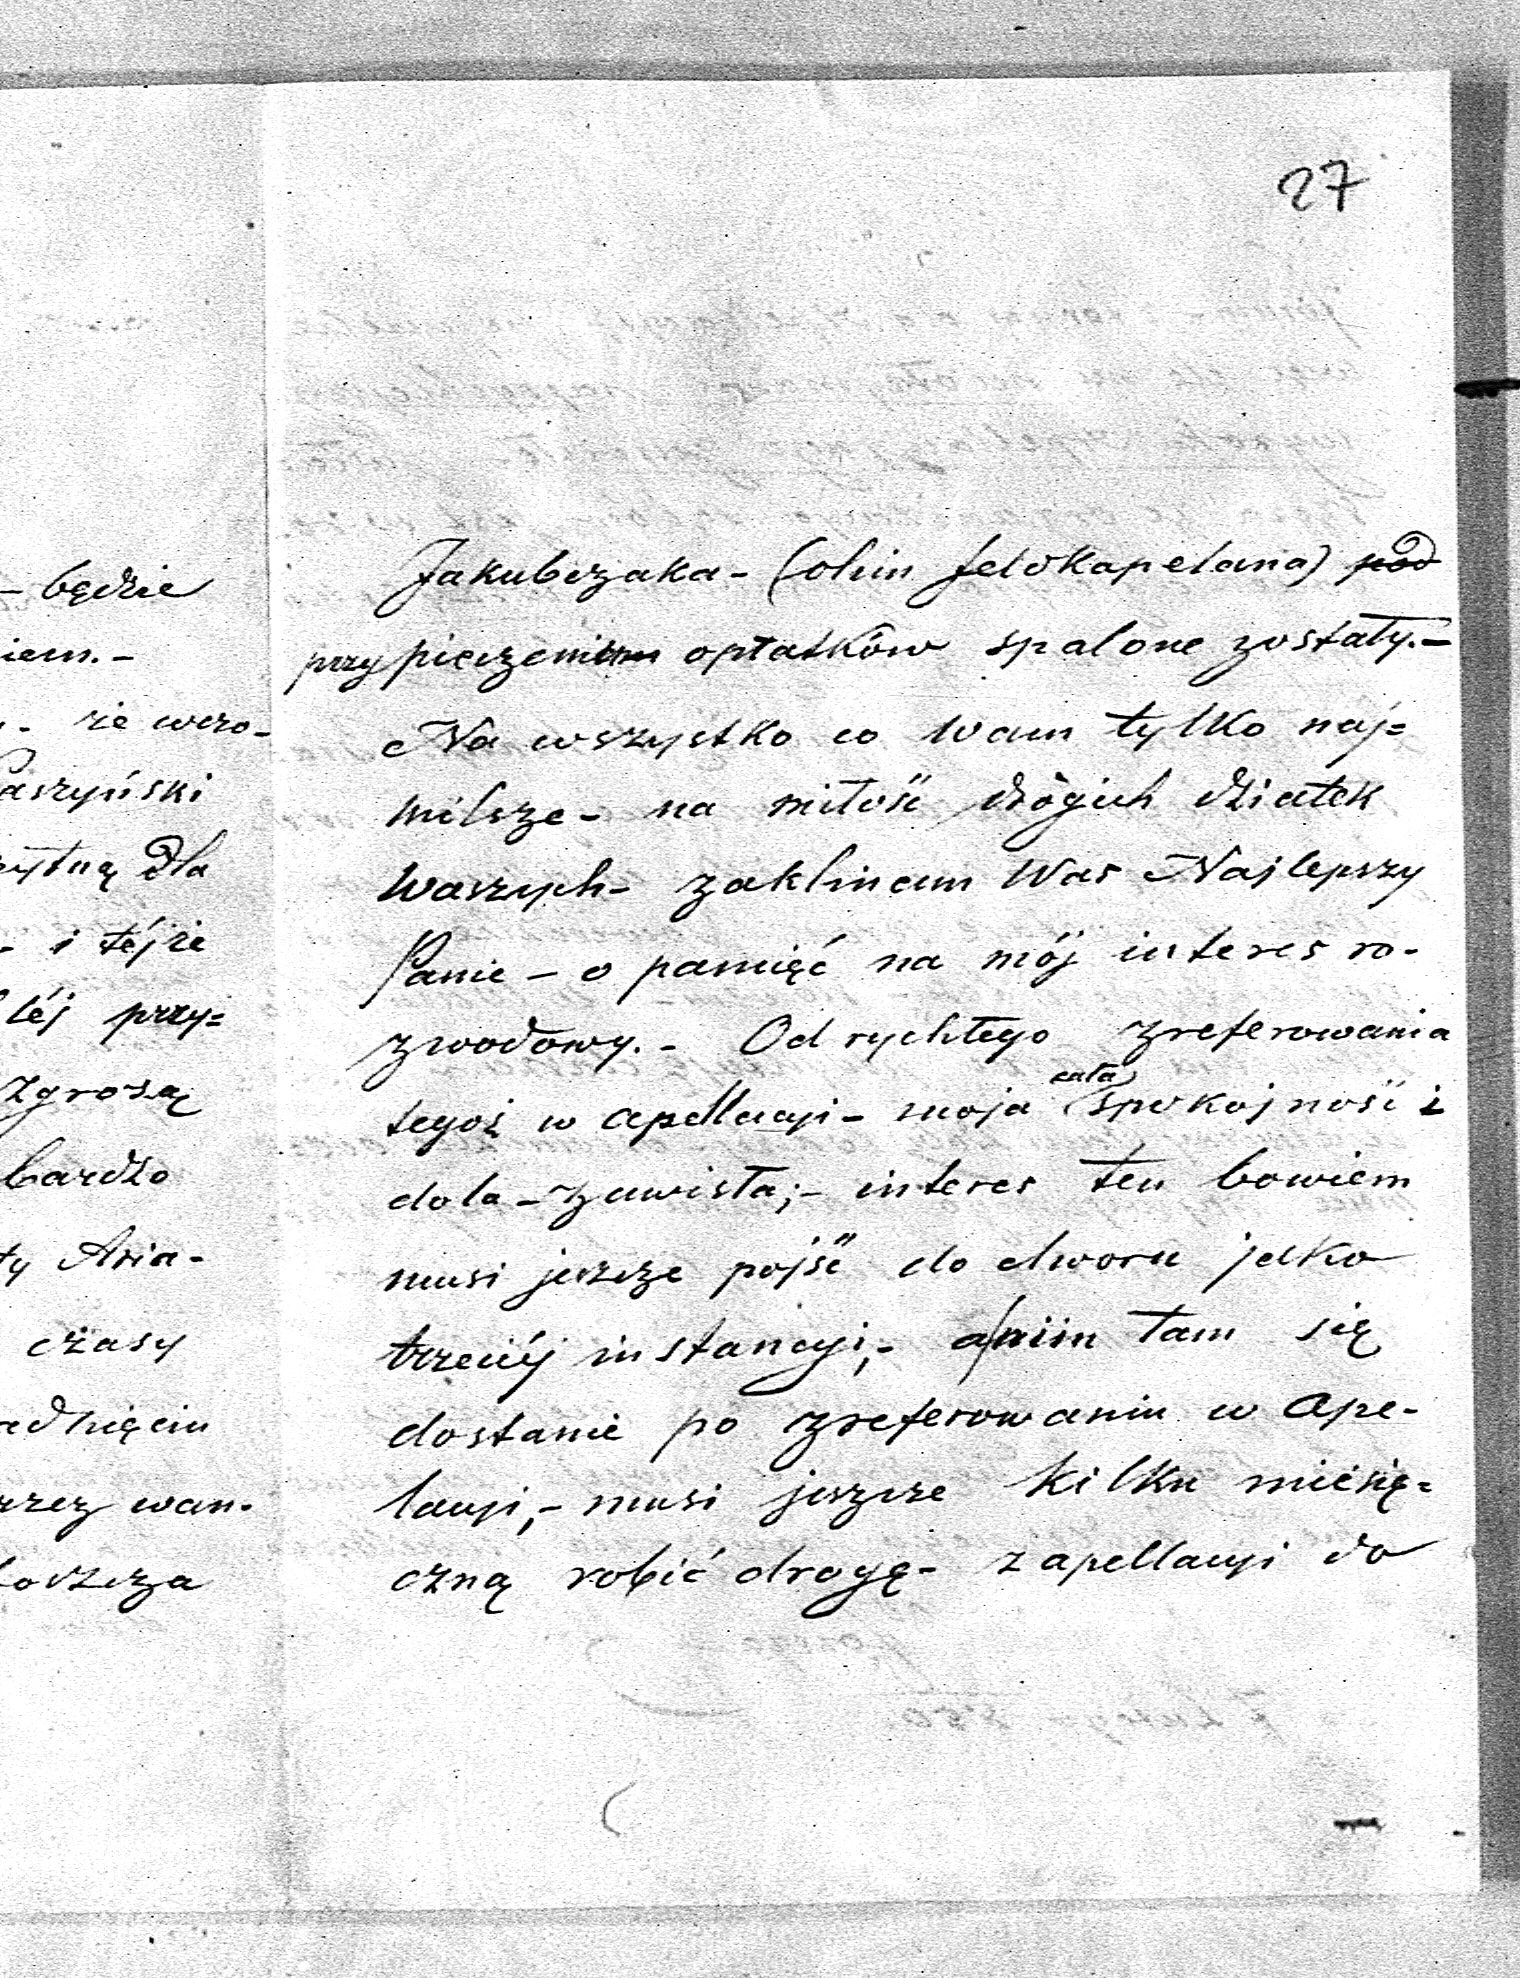 27
Jakubczaka - (olim feldkapelana) pod
przy pieczeniu opłatków spalone zostały. -
Na wszystko co Wam tylko naj=
milsze - na miłość drógich dziatek
Waszych - zaklinam Was Najlepszy
Panie - o pamięć na mój interes ro-
zwodowy. - Od rychłego zreferowania
tegoż w apellacyi - moja cała spokojność i
dola - zawisła; - interes ten bowiem
musi jeszcze pójść do dworu jako
trzeciéj instancyi; - a nim tam się
dostanie po zreferowaniu w ape-
lacyi, - musi jeszcze kilku miesię=
czną robić drogę - z apellacyi do
- będzie
iem. -
że wczo-
aszyński
ytną dla
- i téjże
téj przy=
zgrozą
bardzo
ty Aria-
czasy
wan-